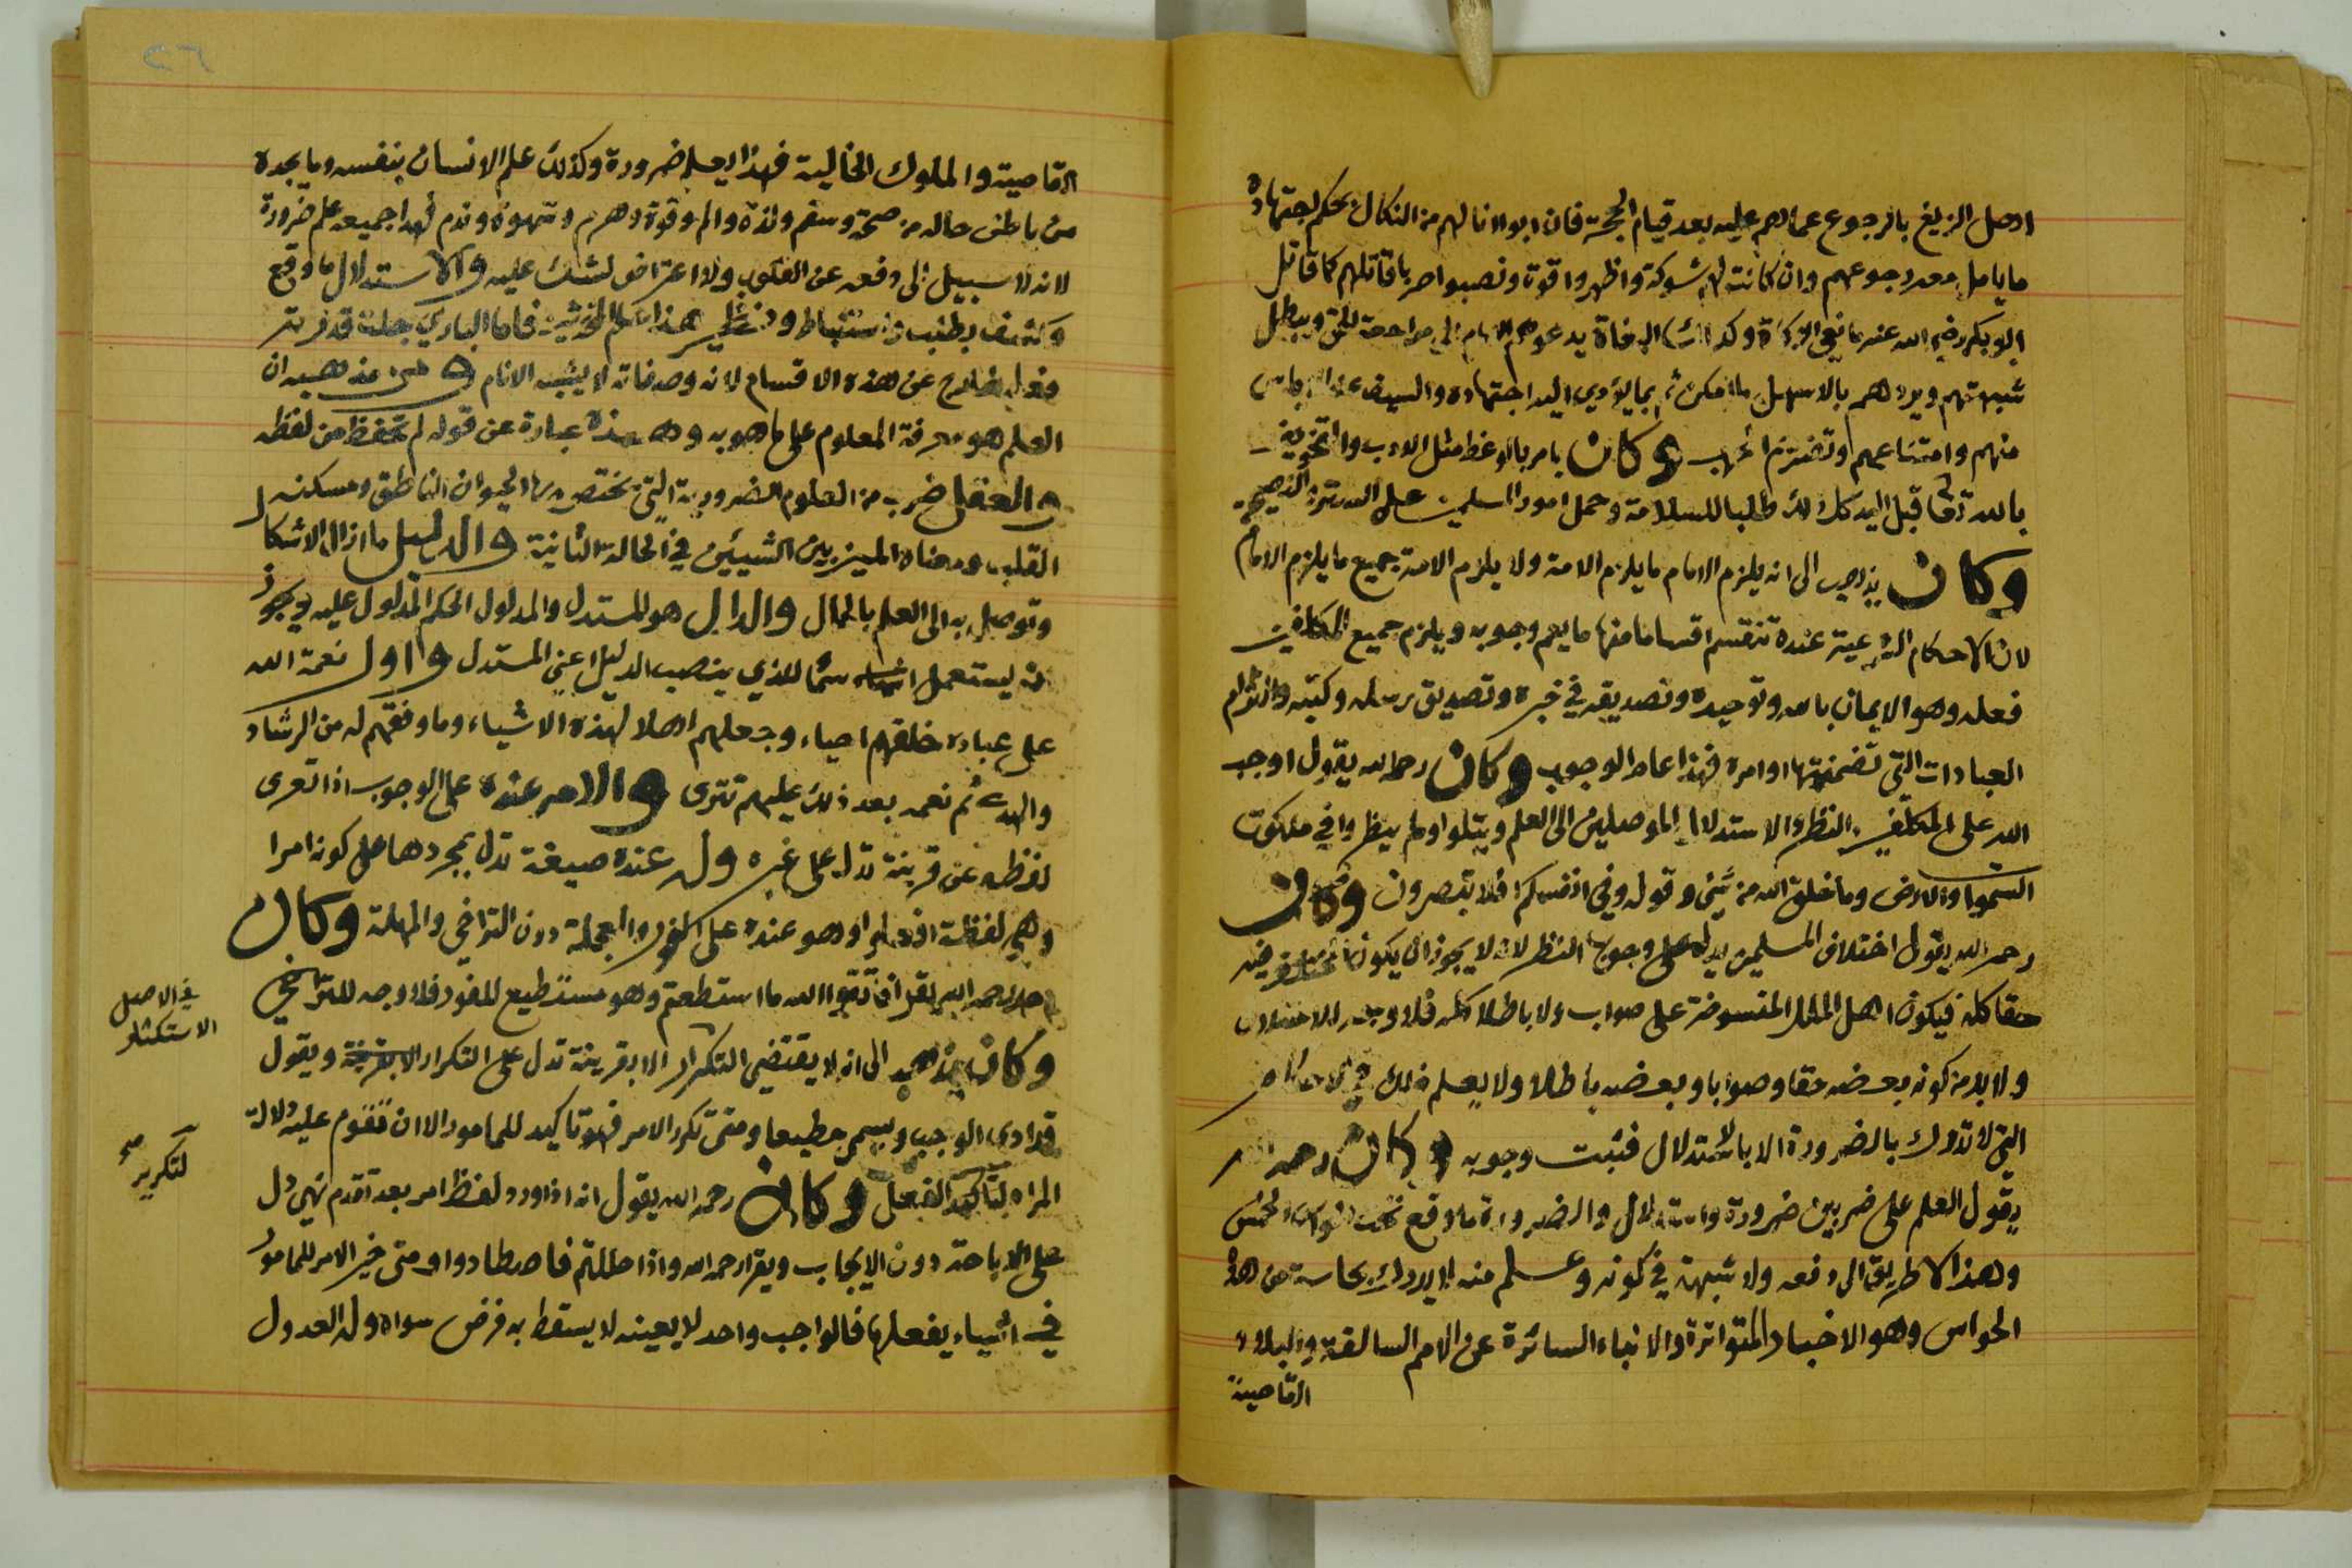 اوصل الزيغ بالرجوع عماهم عليه بعد قيام الحجة فان ابوا انالهم من النكال بحكم اجتهاده
ما يامل معه رجوعهم وان كانت لهم شوكة واظهروا قوة ونصبوا حربا قاتلهم كما قاتل
ابو بكر رضي الله عنه مانعي الزكاة وكذلك البغاة يدعوهم الامام الى مراجعة الحق ويبطل
شبهتهم ويردهم بالاسهل ما امكن ثم بما يؤدي اليه اجتهاده والسيف عند الاياس
منهم وامتناعهم وكان يامر بالوعظ مثل الادب والتخويف
بالله تعالى قبل اليد كل ذلك طلبا للسلامة وحمل امور المسلمين على الستر والنصيحة
وكان يذهب الى انه يلزم الامام ما يلزم الامة ولا يلزم الامة جميع ما يلزم الامام
لان الاحكام الشرعية عنده تنقسم اقساما منها ما يعم وجوبه ويلزم جميع المكلفين
فعله وهو الايمان بالله وتوحيده وتصديقه في خبره وتصديق رسله وكتبه والتزام
العبادات التي تضمنتها اوامره فهذا عام الوجوب وكان رحمه الله يقول اوجب
الله على المكلفين النظر والاستدلال الموصلين الى العلم ويتلوا اولم ينظروا في ملكوت
السموات والارض وما خلق الله من شيئ وقوله وفي انفسكم افلا تبصرون وكان
رحمه الله يقول اختلاف المسلمين يدل على وجوب النظر لانه لا يجوز ان يكون
حقا كله فيكون اهل الملل المنسوخة على صواب ولا باطلا كله فلا وجه للاختلاف
ولا بد من كونه بعضه حقا وصوابا وبعضه باطلا ولا يعلم ذلك في الاحكام
التي لا تدرك بالضرورة الا بالاستدلال فثبت وجوبه وكان رحمه الله
يقول العلم على ضربين ضرورة واستدلال والضرورة ما وقع تحت الحواس الخمس
وهذا لا طريق الى دفعه ولا شبهة في كونه وعلم منه لا يدرك بحاسة من هذه
الحواس وهو الاخبار المتواترة والانباء السائرة عن الامم السالفة والبلاد
القاصية
القاصية والملوك الخالية فهذا يعلم ضرورة وكذلك علم الانسان بنفسه وما يجده
من باطن حاله من صحة وسقم ولذة والم وقوة وهرم وشهوة وندم فهذا جميعه علم ضرورة
لانه لا سبيل الى دفعه عن القلوب ولا اعتراض لشك عليه والاستدلال ما وقع
وكشف بطلب واستنباط ونظر هذا علم المحدثين فاما الباري جلت قدرته
فعلمه خارج عن هذه الاقسام لانه وصفاته لا يشبه الانام ومن مذهبه ان
العلم هو معرفة المعلوم على ما هو به وهذه عبارة عن قوله لم تحفظ من لفظه
والعقل ضرب من العلوم الضرورية التي يختص بها الحيوان الناطق ومسكنه
القلب ومعناه الميز بين الشيئين في الحالة الثانية والدليل ما ازال الاشكال
وتوصل به الى العلم بالحال والدال هو للمستدل والمدلول الحكم المدلول عليه ويجوز
ان يستعمل اسما للذي ينصب الدليل اعني المستدل واول نعمة الله
على عباده خلقهم احياء وجعلهم اهلا لهذه الاشياء وما وفقهم له من الرشاد
والهدى ثم نعمه بعد ذلك عليهم تترى والامر عنده على الوجوب اذا تعرى
لفظه عن قرينة تدل على غيره وله عنده صيغة تدل بمجردها على كونه امرا
وهي لفظة افعل وهو عنده على الفور والعجلة دون التراخي والمهلة وكان
رحمه الله يقرأ فاتقوا الله ما استطعتم وهو مستطيع للفور فلا وجه للتراخي
وكان يذهب الى انه لا يقتضي التكرار الا بقرينة تدل على التكرار ويقول
قد ادى الواجب ويسمى مطيعا ومتى تكرر الامر فهو تاكيد للمامور الا ان تقوم عليه دلالة
المراه لتاكيد الفعل وكان رحمه الله يقول انه اذا ورد لفظ امر بعد تقدم نهي دل
على الاباحة دون الايجاب ويقرا رحمه الله واذا حللتم فاصطادوا ومتى خير الامر للمامور
في اشياء يفعلها فالواجب واحد لا بعينه لا يسقط به فرض سواه وله العدول
في الاصل
الاستكثار
لتكرير
صح
٢٦